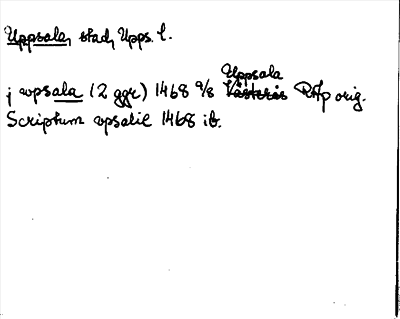 Uppsala, stad, Upps. l.
Uppsala
j wpsala (2 ggr) 1468 9/8 Västerås RAp orig.
Scriptum vpsalie 1468 ib.